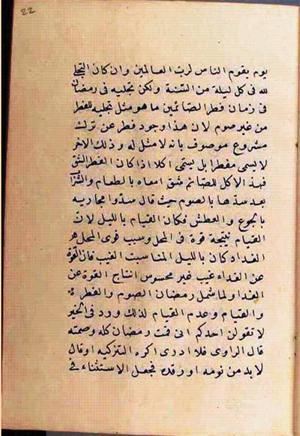 22
يوم يقوم الناس لرب العالمين وان كان التجلي
لله في كل ليلة من السنة ولكن تجليه في رمضان
في زمان فطر الصائمين ما هو مثل تجليه للفطر
من غير صوم لان هذا وجود فطر عن ترك
مشروع موصوف بانه لا مثل له وذلك الاخر
لا يسمى مفطرا بل يسمى آكلا اذا كان الفطر الشق
فهذا الاكل للصائم شق امعاه بالطعام والشراب
بعد سدها بالصوم حيث قال سدوا مجاريه
بالجوع والعطش فكان القيام بالليل لان
القيام نتيجة قوة في المحل وسبب قوى المحل هو
الغذاء وكان بالليل لمناسبت الغيب فان القوة
عن الغذاء غيب غير محسوس انتاج القوة عن
الغداء ولما شمل رمضان الصوم والفطر
والقيام وعدم القيام لذلك ورد في الخبر
لا تقولن احدكم اني قمت رمضان كله وصمته
قال الراوي فلا ادرى اكره التزكيه او قال
لا بد من نومه او رقده فجعل الاستثناء في